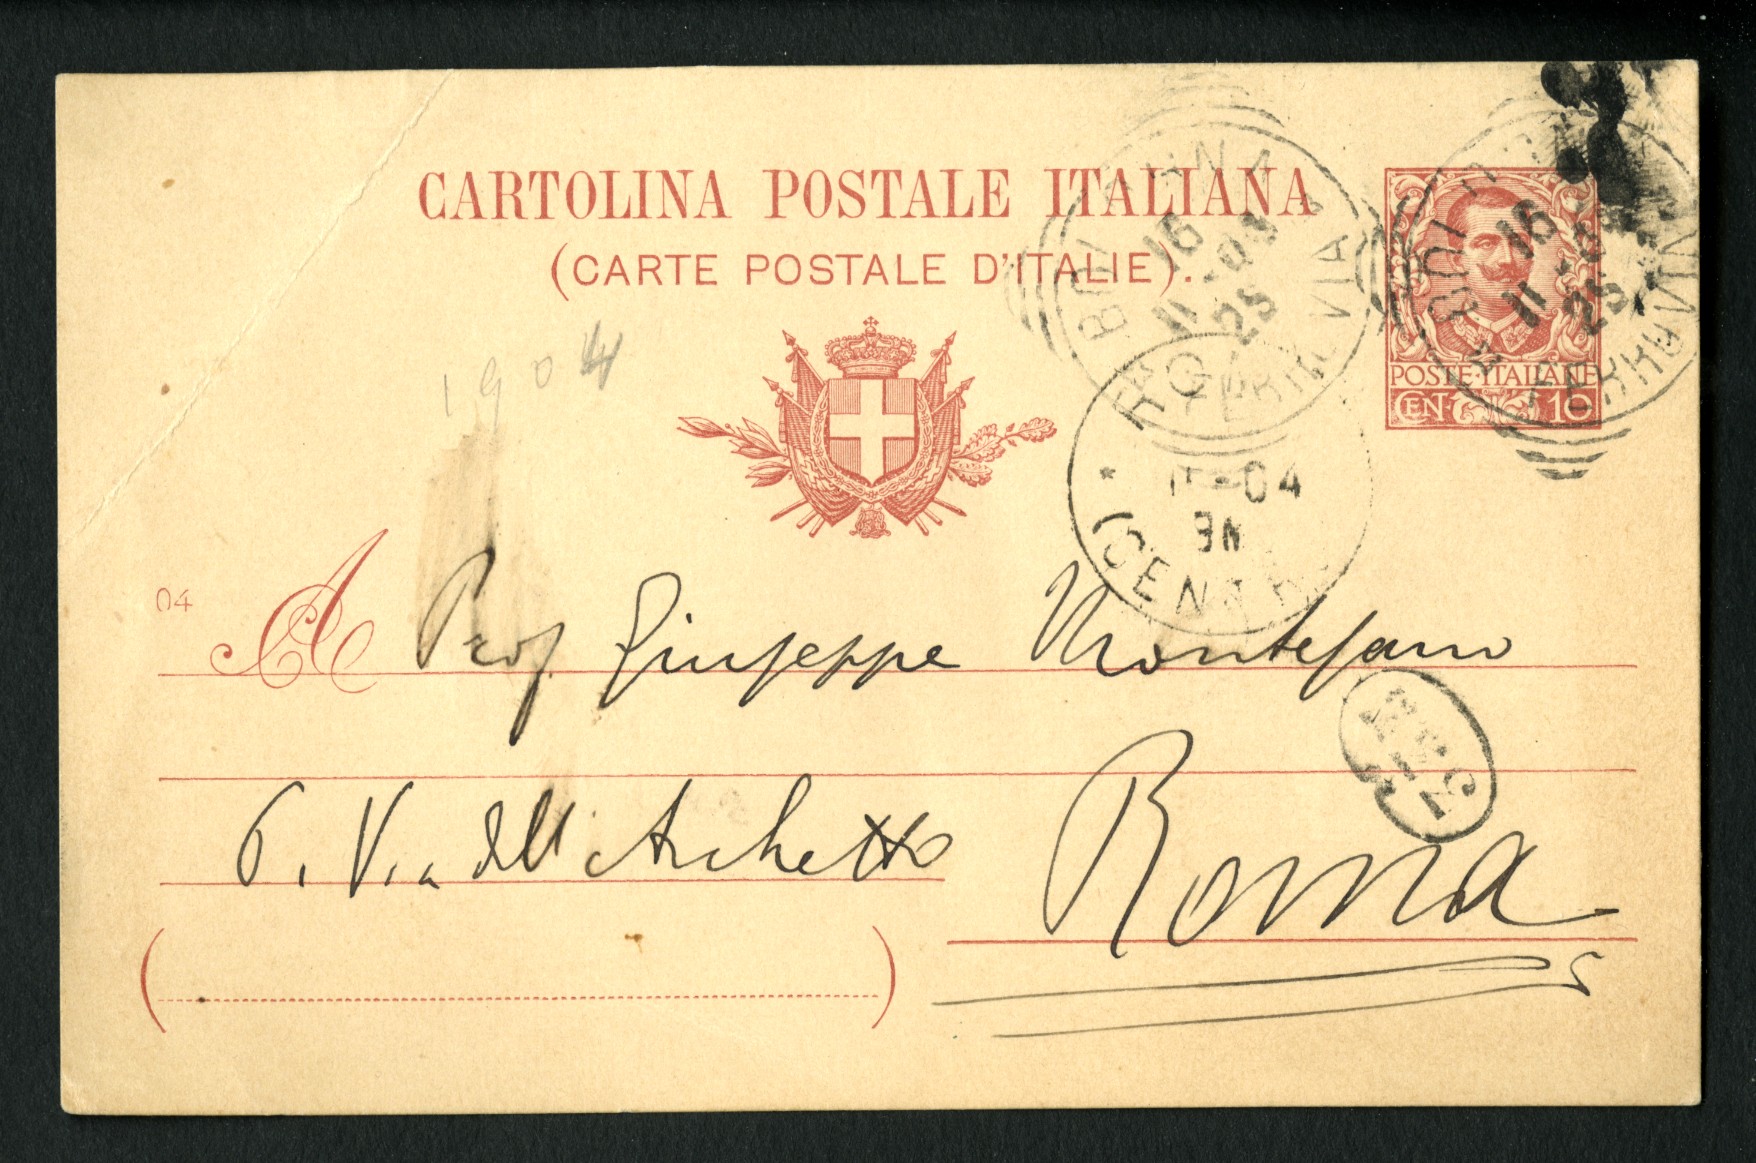 CARTOLINA POSTALE ITALIANA
(CARTE POSTALE D'ITALIE).
POSTE·ITALIANE
CEN 10
BOLOGNA
FERROVIA
16
11
25
FERROVIA
16
11
25
1904
ROMA
-04
(CENTR
04
A Prof Giuseppe Montesano
6. Via dell'Archetto Roma